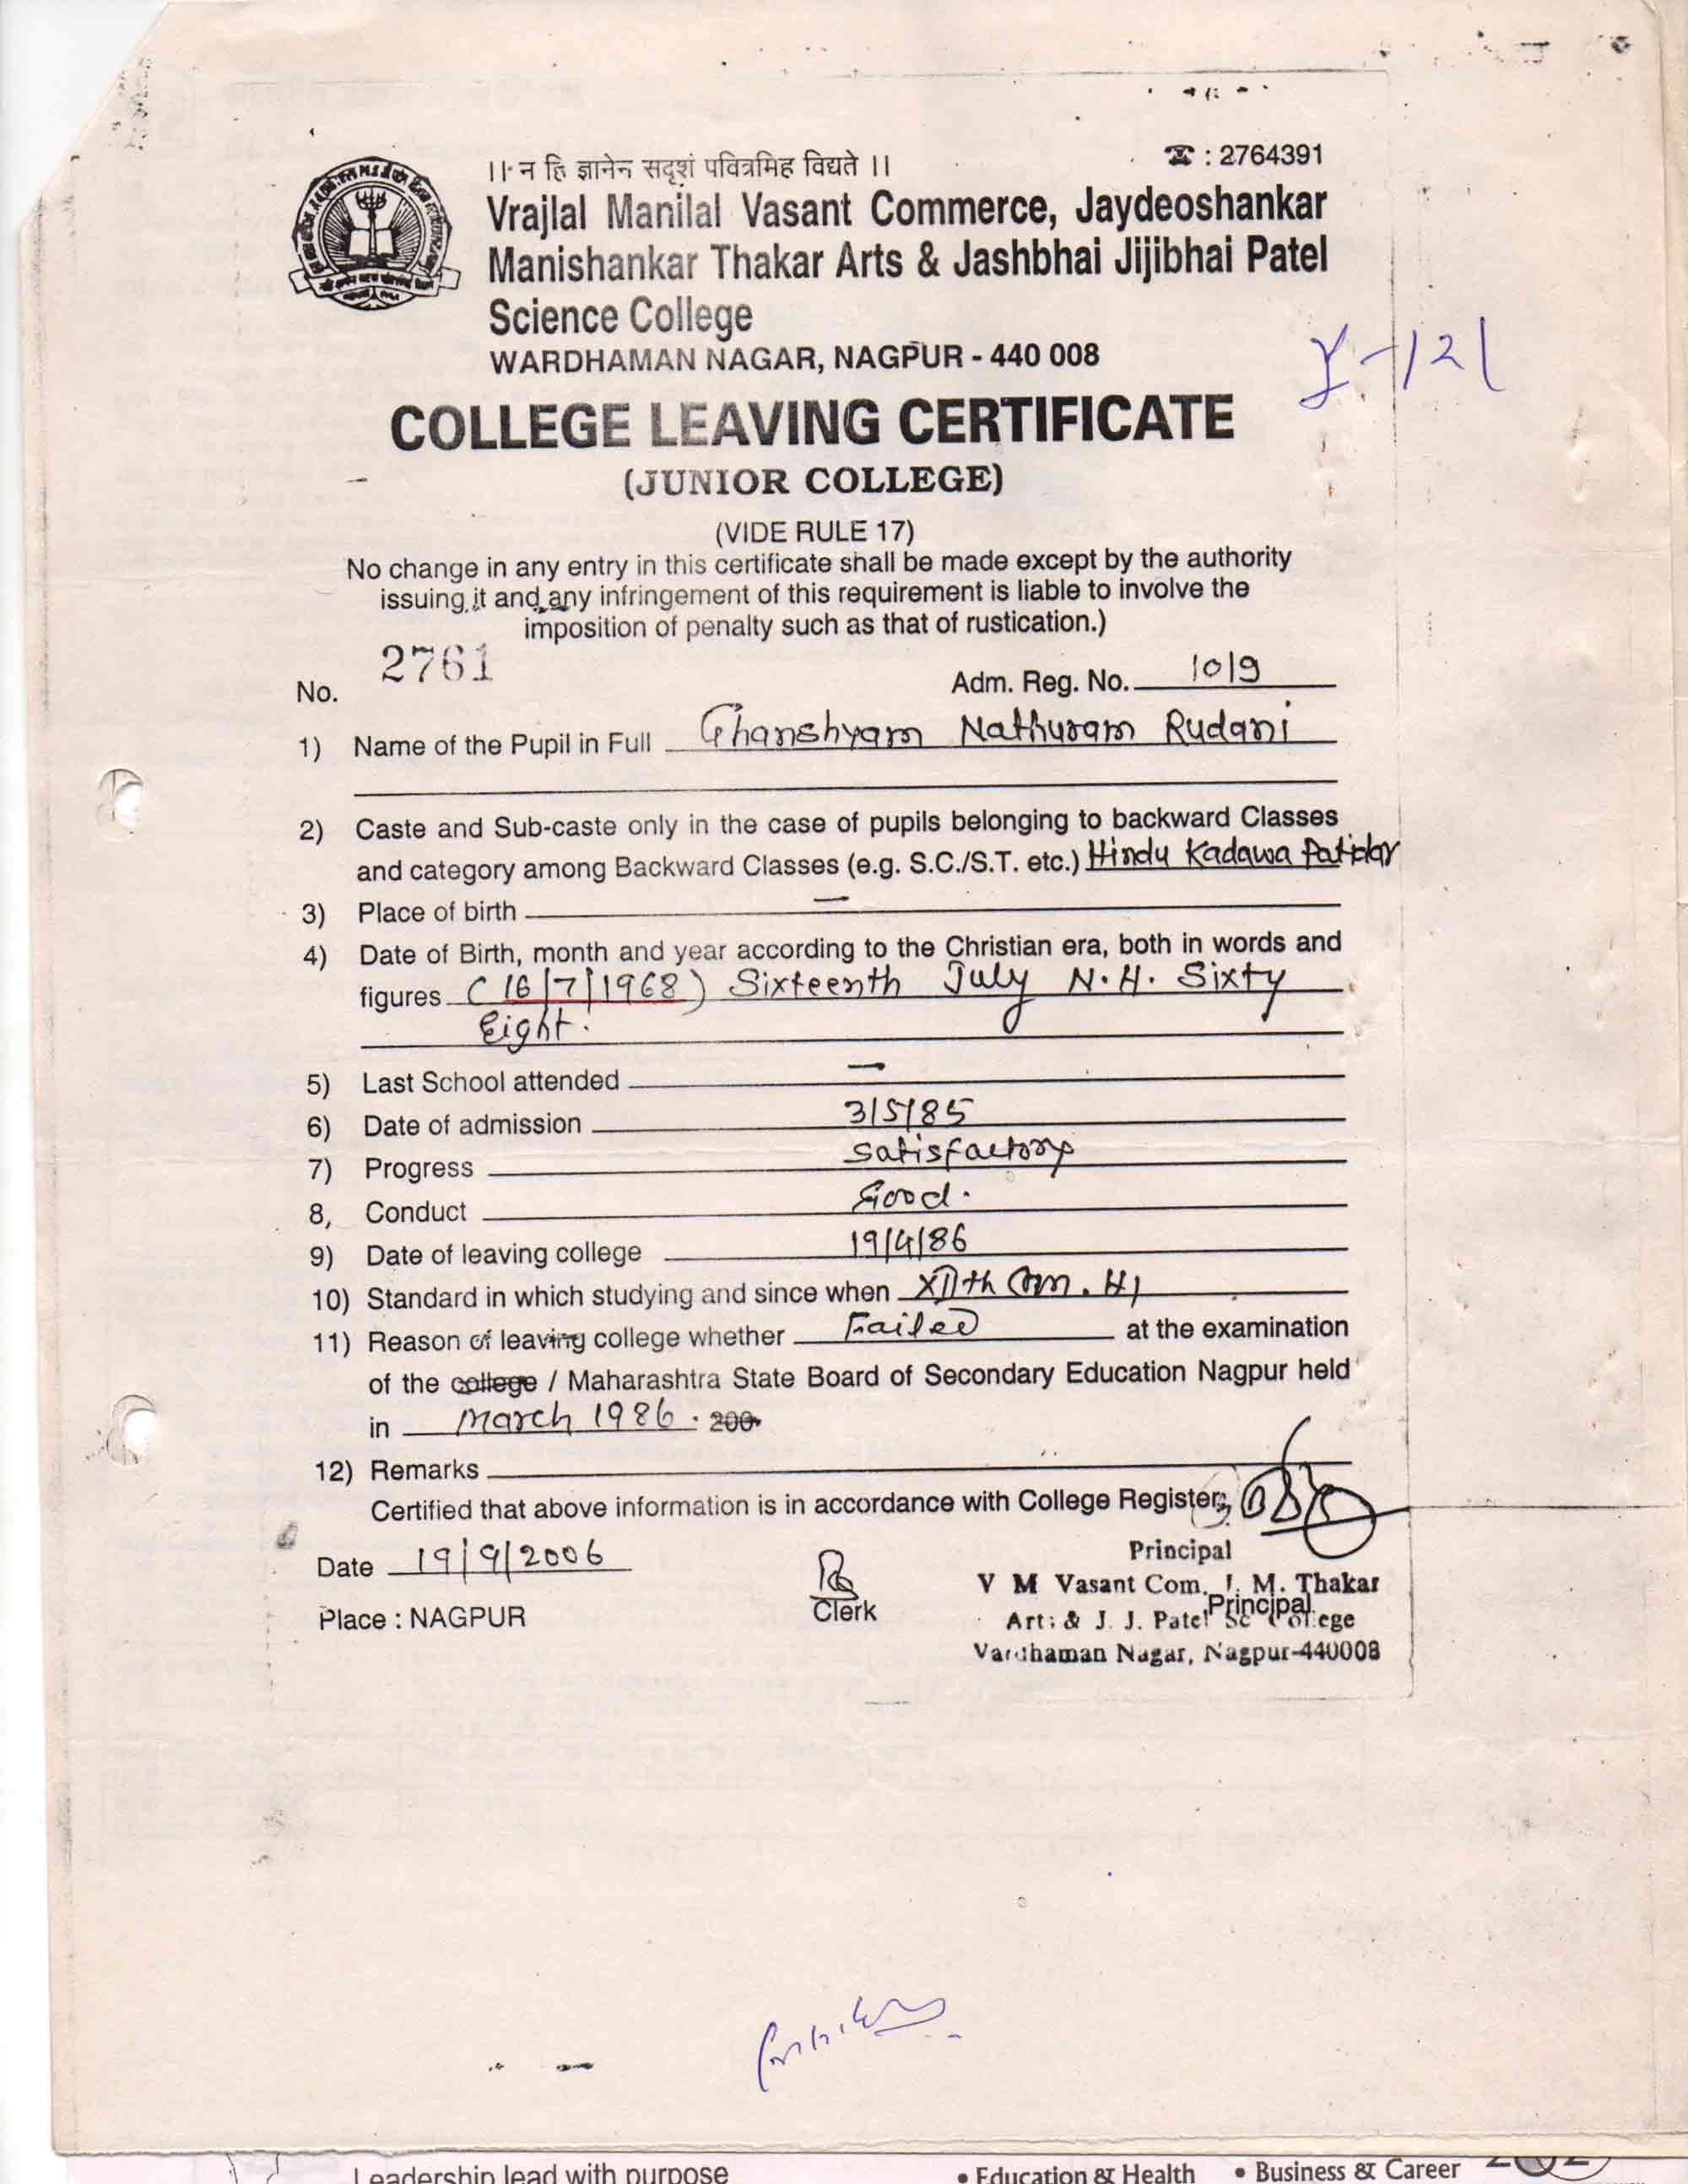 ।। न हि ज्ञानेन सदृशं पवित्रमिह विद्यते ।।
☎ : 2764391
Vrajlal Manilal Vasant Commerce, Jaydeoshankar
Manishankar Thakar Arts & Jashbhai Jijibhai Patel
Science College
WARDHAMAN NAGAR, NAGPUR - 440 008
COLLEGE LEAVING CERTIFICATE
(JUNIOR COLLEGE)
(VIDE RULE 17)
No change in any entry in this certificate shall be made except by the authority
issuing it and any infringement of this requirement is liable to involve the
imposition of penalty such as that of rustication.)
No. 2761
Adm. Reg. No. 1019
1) Name of the Pupil in Full Ghanshyam Nathuram Rudani
2) Caste and Sub-caste only in the case of pupils belonging to backward Classes
and category among Backward Classes (e.g. S.C./S.T. etc.) Hindu Kadawa Patidar
3) Place of birth —
4) Date of Birth, month and year according to the Christian era, both in words and
figures (16/7/1968) Sixteenth July N.H. Sixty
Eight.
5) Last School attended —
6) Date of admission 3/5/85
7) Progress Satisfactory
8, Conduct Good.
9) Date of leaving college 19/4/86
10) Standard in which studying and since when XIIth Com. H1
11) Reason of leaving college whether Failed at the examination
of the college / Maharashtra State Board of Secondary Education Nagpur held
in March 1986. 200
12) Remarks
Certified that above information is in accordance with College Register,
Date 19/9/2006
Place : NAGPUR
Clerk
Principal
Principal
V M Vasant Com. J. M. Thakar
Arts & J. J. Patel Sc College
Vardhaman Nagar, Nagpur-440008
Leadership lead with purpose
• Education & Health • Business & Career